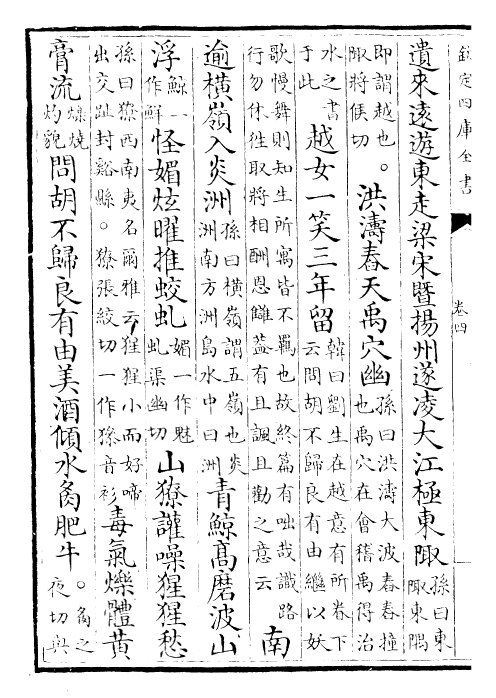 欽定四庫全書 卷四
遺來遠遊東走梁宋暨揚州遂凌大江極東陬孫曰東陬東隅
即謂越也。陬將侯切洪濤舂天禹穴幽孫曰洪濤大波舂舂撞也禹穴在會稽禹得治
水之書于此越女一笑三年留韓曰劉生在越意有所眷下云問胡不歸良有由繼以妖
歌慢舞則知生所寓皆不羈也故終篇有咄哉識路行勿休往取將相酬恩讎葢有且諷且勸之意云南
逾橫嶺入炎洲孫曰橫嶺謂五嶺也炎洲南方洲島水中曰洲青鯨高磨波山
浮鯨一作鮮怪媚炫曜推蛟虬媚一作魅虬渠幽切山獠讙噪猩猩愁
孫曰獠西南夷名爾雅云猩猩小而好啼出交趾封谿縣。獠張絞切一作音衫毒氣爍體黃
膏流爍燒灼貌問胡不歸良有由美酒傾水炙肥牛。炙之夜切與